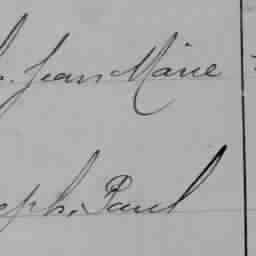 h. Jean Marie
eph. Paul